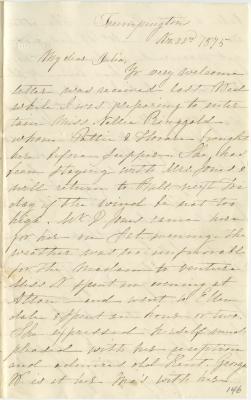 Trumpington
Nov. 22nd 1875
My dear Julia,
Yr very welcome
letter was received last Wed
while I was preparing to enter
tain Miss Nellie Ringgold
whom Hattie & brought
here before supper. She has
been staying with Mrs Jones &
will return to Balt next Tues
day if the wind be not too
high. Mr J Jones came here
for her on Sat evening the
weather was too unfavorable
for the Madam to venture
Miss R spent an evening at
and went to Glen
dale & spent an hour or two.
She expressed herself much
pleased with her reception
and admires old Kent. George
W. is at Mrs with her
146